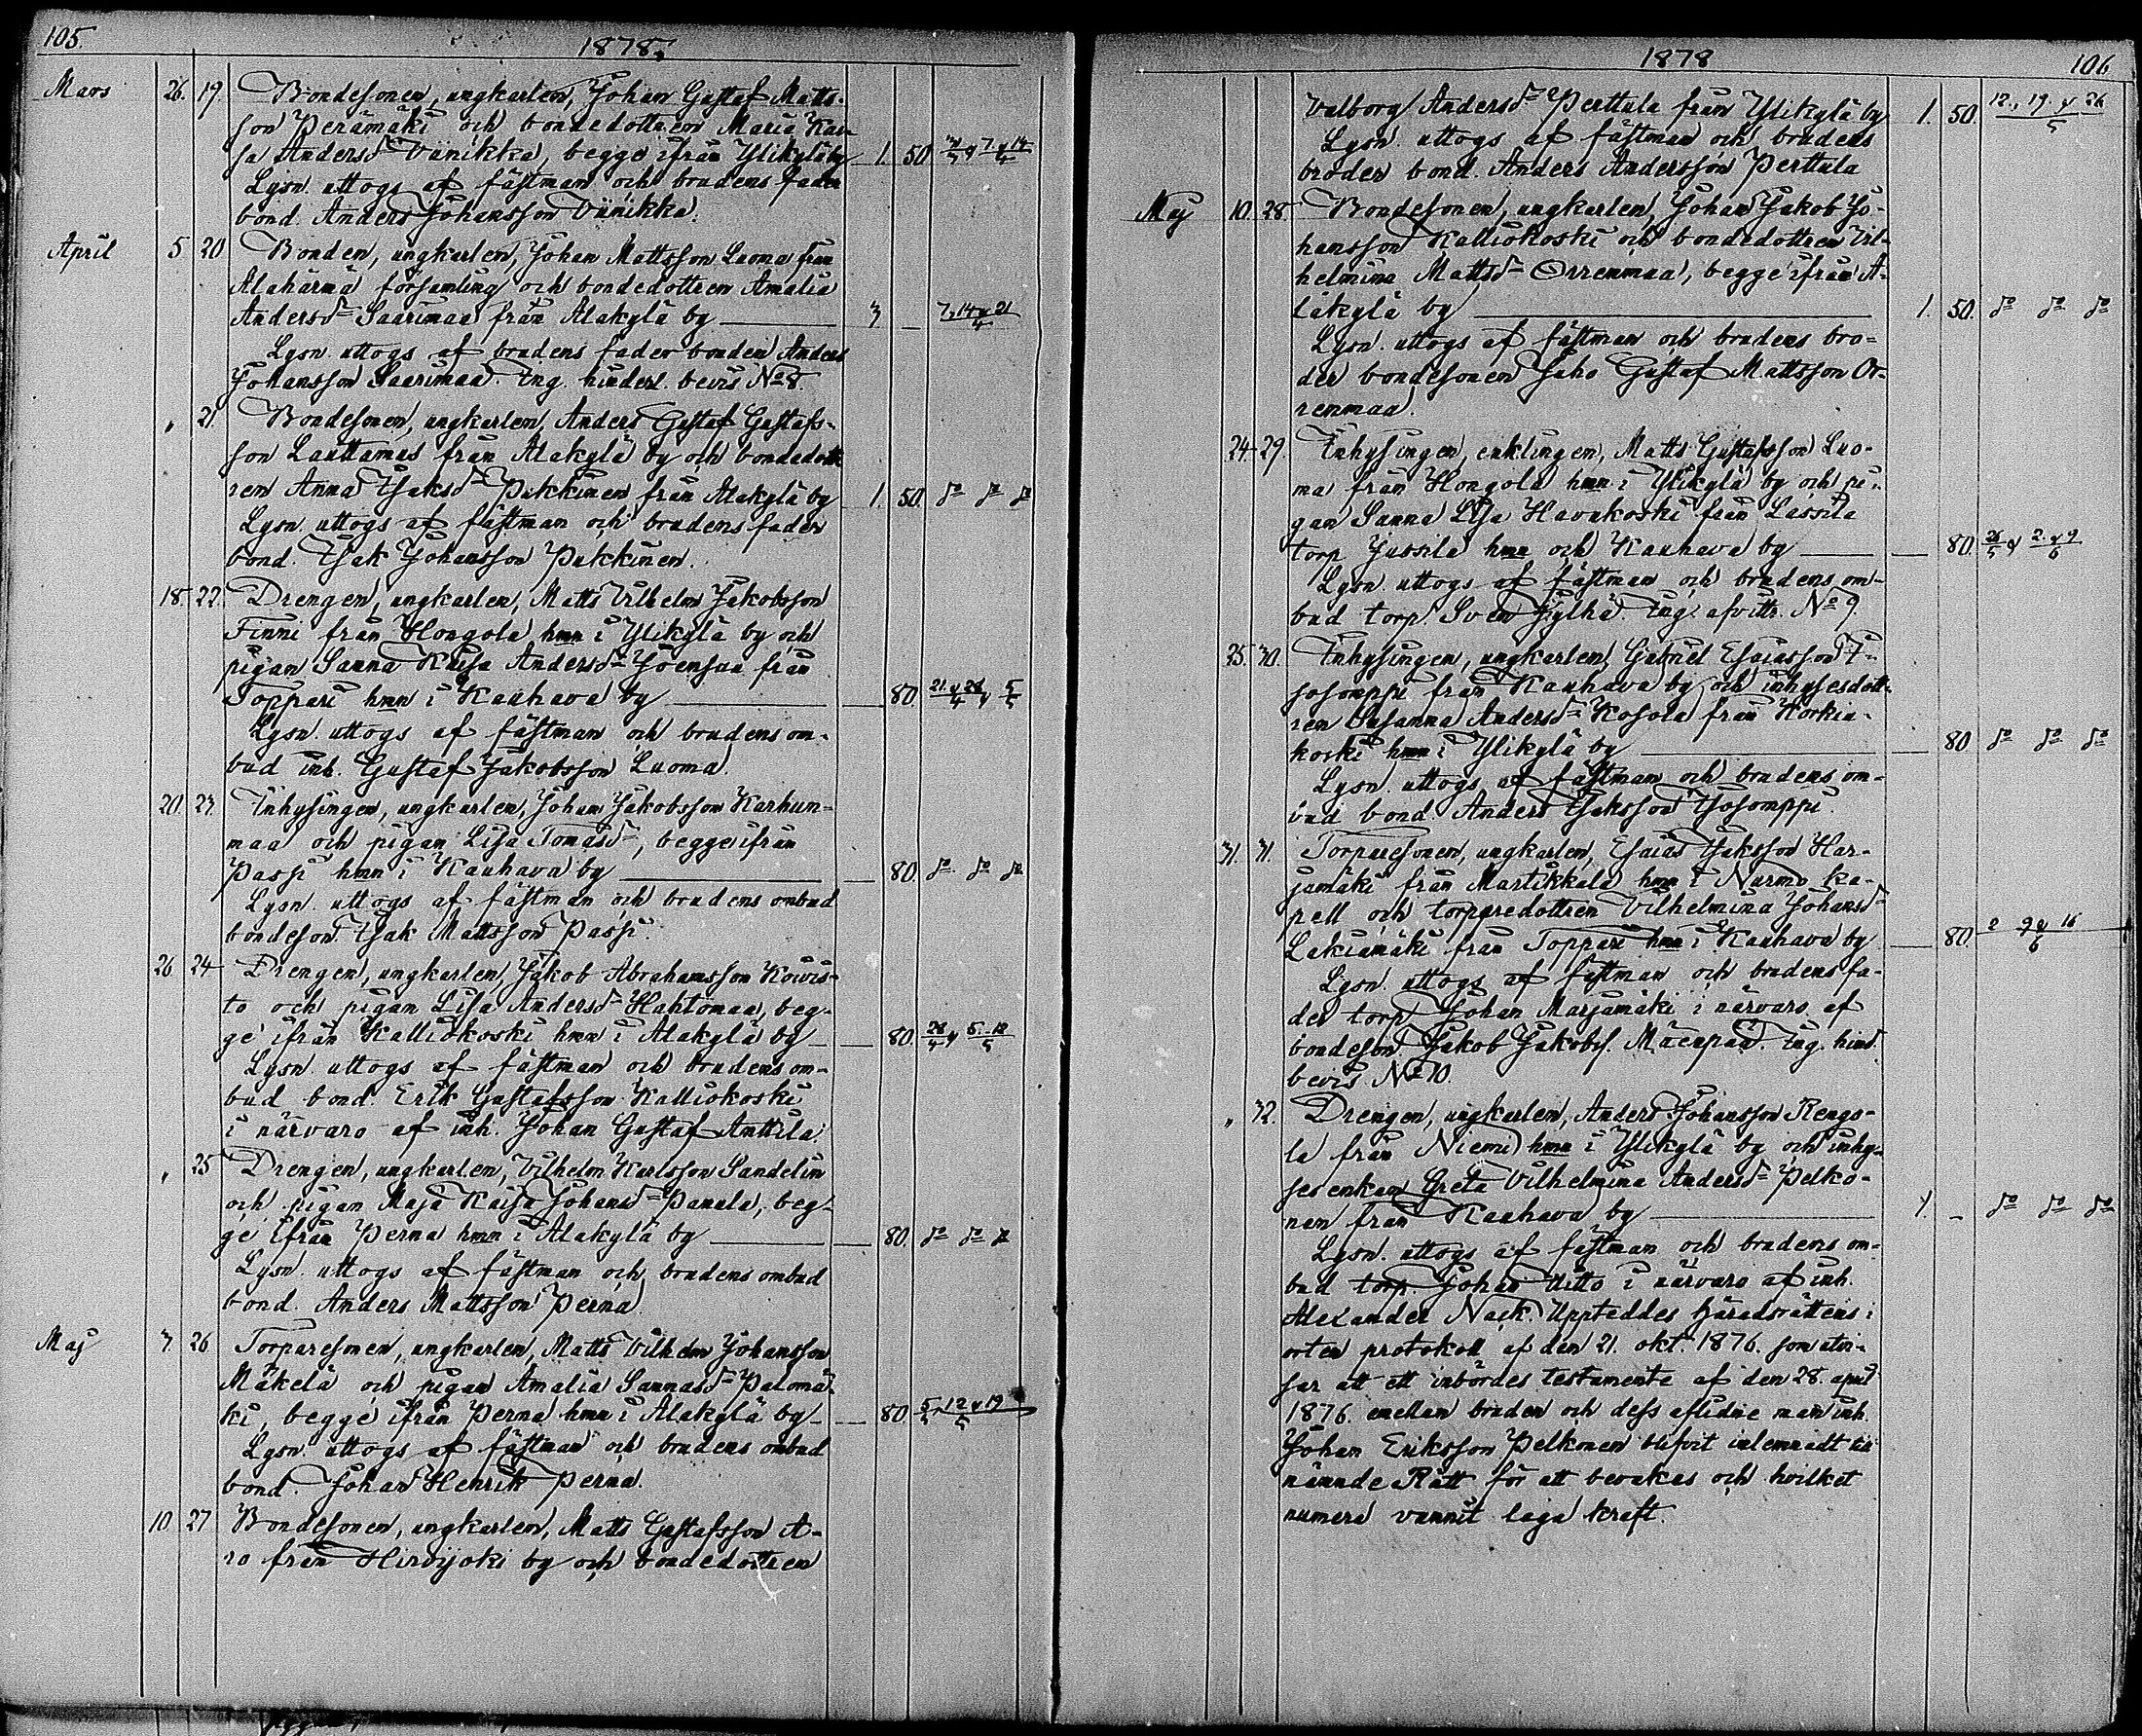 105.
1878.
Mars 26. 19. Bondesonen, ungkarlen, Johan Gustaf Matts-
son Perämäki och bondedottren Maria Kai-
sa Andersd. Viinikka, begge ifrån Ylikylä by 1. 50 31/3 & 7 & 14/4
Lysn. uttogs af fästman och brudens fader
bond. Anders Johansson Viinikka.
April 5 20 Bonden, ungkarlen, Johan Mattsson Luoma från
Alahärmä församling och bondedottren Amalia
Andersd. Saarimaa från Alakylä by 3 — 7, 14 & 21/4
Lysn. uttogs af brudens fader bonden Anders
Johansson Saarimaa. Ing. hinderl. bevis No 8.
" 21. Bondesonen, ungkarlen, Anders Gustaf Gustafs-
son Lauttamus från Alakylä by och bondedott-
ren Anna Isaksd. Pukkinen från Alakylä by 1. 50. do do do
Lysn. uttogs af fästman och brudens fader
bond. Isak Johansson Pukkinen.
18. 22. Drengen, ungkarlen, Matts Vilhelm Jakobsson
Finni från Hongola hmn i Ylikylä by och
pigan Sanna Kaisa Andersd. Joensuu från
Toppari hmn i Kauhava by — 80. 21 & 28/4 & 5/5
Lysn. uttogs af fästman och brudens om-
bud inh. Gustaf Jakobsson Luoma.
20. 23. Inhysingen, ungkarlen, Johan Jakobsson Karhun-
maa och pigan Lisa Tomasd., begge ifrån
Passi hmn i Kauhava by — 80. do do do
Lysn. uttogs af fästman och brudens ombud
bondeson. Isak Mattsson Passi.
26 24 Drengen, ungkarlen, Jakob Abrahamsson Koivis-
to och pigan Lisa Andersd. Hahtomaa, beg-
ge ifrån Kalliokoski hmn i Alakylä by — 80. 28/4 & 5. 12/5
Lysn. uttogs af fästman och brudens om-
bud bond. Erik Gustafsson Kalliokoski
i närvaro af inh. Johan Gustaf Anttila.
" 25 Drengen, ungkarlen, Vilhelm Karlsson Sandelin
och pigan Maja Kaisa Johansd. Panula, beg-
ge ifrån Perna hmn i Alakylä by — 80. do do do
Lysn. uttogs af fästman och brudens ombud
bond. Anders Mattsson Perna.
Maj 3. 26 Torparesonen, ungkarlen, Matts Vilhelm Johansson
Mäkelä och pigan Amalia Sannasd. Palomä-
ki, begge ifrån Perna hmn i Alakylä by — 80. 5/5, 12 & 19/5
Lysn. uttogs af fästman och brudens ombud
bond. Johan Henrik Perna.
10. 27 Bondesonen, ungkarlen, Matts Gustafsson A-
ro från Hirvijoki by och bondedottren
1878
106
Valborg Andersd. Perttula från Ylikylä by 1. 50. 12., 19. & 26/5
Lysn. uttogs af fästman och brudens
broder bond. Anders Andersson Perttula
Maj 10. 28 Bondesonen, ungkarlen, Johan Jakob Jo-
hansson Kalliokoski och bondedottren Vil-
helmina Mattsd. Orrenmaa, begge ifrån A-
lakylä by 1. 50. do do do
Lysn. uttogs af fästman och brudens bro-
der bondesonen Juho Gustaf Mattsson Or-
renmaa.
24 29. Inhysingen, enklingen, Matts Gustafsson Luo-
ma från Hongola hmn i Ylikylä by och pi-
gan Sanna Lisa Havukoski från Lassila
torp Jussila hmn och Kauhava by — 80. 26/5 & 2 & 9/6
Lysn. uttogs af fästman och brudens om-
bud torp. Sven Jylhä. Ing. afvittr. No 9.
25. 30. Inhysingen, ungkarlen, Gabriel Esaiasson I-
sosomppi från Kauhava by och inhysesdott-
ren Susanna Andersd. Kosola från Korkia-
koski hmn i Ylikylä by — 80 do do do
Lysn. uttogs af fästman och brudens om-
bud bond. Anders Isaksson Isosomppi.
31. 31. Torparesonen, ungkarlen, Esaias Isaksson Har-
jumäki från Martikkala hmn i Nurmo ka-
pell och torparedottren Vilhelmina Johansd.
Lakiamäki från Toppari hmn i Kauhava by — 80. 2 9 & 16/6
Lysn. uttogs af fästman och brudens fa-
der torp. Johan Marjamäki i närvaro af
bondeson. Jakob Jakobs. Mäenpää. Ing. hind.
bevis No 10.
" 32. Drengen, ungkarlen, Anders Johansson Rengo-
la från Niemi hmn i Ylikylä by och inhy-
ses enkan Greta Vilhelmina Andersd. Pelko-
nen från Kauhava by 1. — do do do
Lysn. uttogs af fästman och brudens om-
bud torp. Johan Uitto i närvaro af inh.
Alexander Nack. Uppteddes häradsrättens i
orten protokoll af den 21. okt. 1876. som utvi-
sar att ett inbördes testamente af den 28. april
1876. emellan bruden och dess aflidne man inh.
Johan Eriksson Pelkonen blifvit inlemnadt till
nämnde Rätt för att bevakas och hvilket
numera vunnit laga kraft.